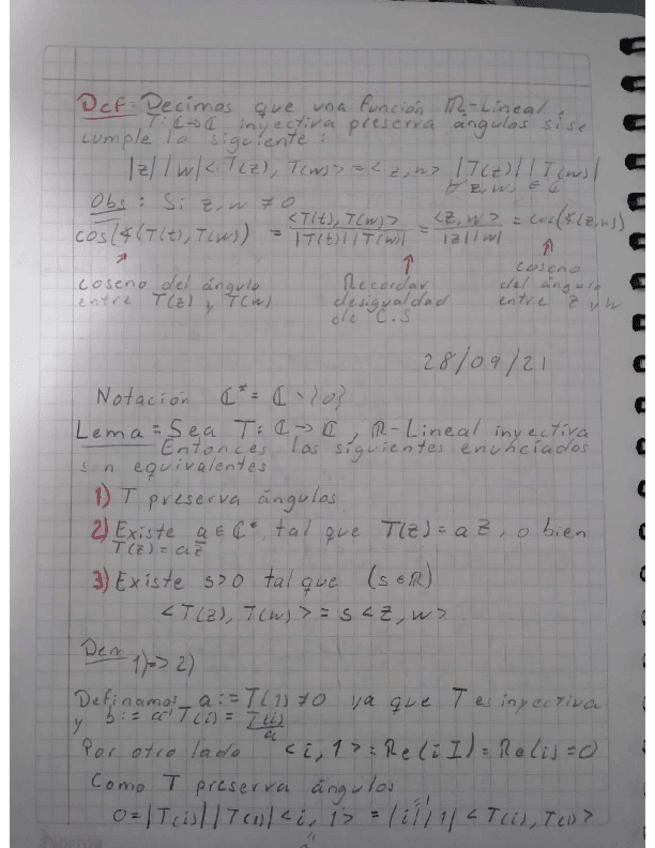 Def: Decimos que una función ℝ-Lineal,
T: ℂ→ℂ inyectiva preserva ángulos si se
cumple lo siguiente:
|z||w|<T(z), T(w)> = <z,w> |T(z)||T(w)|
∀ z,w, ∈ ℂ
Obs: Si z,w ≠ 0
cos(∢(T(z),T(w)) = <T(z), T(w)> / |T(z)||T(w)| = <z,w> / |z||w| = cos(∢(z,w))
coseno del ángulo
entre T(z) y T(w)
Recordar
desigualdad
de C.S
coseno
del ángulo
entre z y w
28/09/21
Notación ℂ* = ℂ \ {0}
Lema = Sea T: ℂ→ℂ, ℝ-Lineal inyectiva
Entonces los siguientes enunciados
son equivalentes
1) T preserva ángulos
2) Existe a ∈ ℂ*, tal que T(z) = a z, o bien
T(z) = a z̄
3) Existe s>0 tal que (s∈ℝ)
<T(z), T(w)> = s <z, w>
Dem 1)=>2)
Definamos a := T(1) ≠ 0 ya que T es inyectiva
y b := a⁻¹T(i) = T(i)/a
Por otro lado <i, 1> = Re(i1̄) = Re(i) = 0
Como T preserva ángulos
0 = |T(i)||T(1)|<i, 1> = |i||1|<T(i), T(1)>
Norma